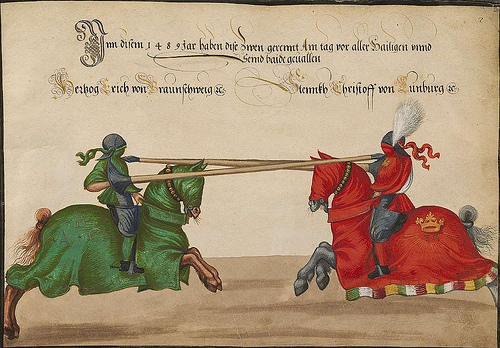 Inn disem 1489 Jar haben dise Zwen gerennt Am tag vor aller Hailigen vnnd
Seind baide geuallen
Hertzog Erich von Braunschweig ⁊c
Christoff von Limburg ⁊c
2